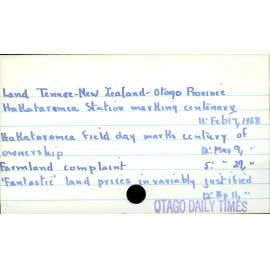 Land Tenure-New Zealand-Otago Province
Hakataramea Station marking centenary
11: Feb 17, 1968
Hakataramea field day marks century of
ownership 12: Mar 9, "
Farmland complaint 5: " 29, "
'Fantastic' land prices invariably justified
12: Ap 11, "
OTAGO DAILY TIMES